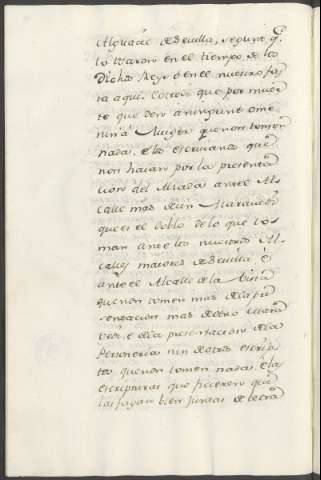 Alguacil de Sevilla, segunt q.
lo usaron en el tiempo de los
Dichos Reys é en el nuestro fas
ta aqui. Otrosi que por muer
te que den á ningunt ome
nin á Muger que non tomen
nada. é los escrivanos que
non hayan por la presenta
cion del Alcada ante el Al
calle mas de un Maravedi
que es el doblo de lo que to
man ante los nuestros Al
calles maiores de Sevilla, é
ante el Alcalle de la
que non tomen mas de la pre
sentacion mas de otro
é de la presentacion de la
Personeria nin de otros escrip
tos que non tomen nada. é las
escripturas que ficieren que
las fagan bien juntas de letra